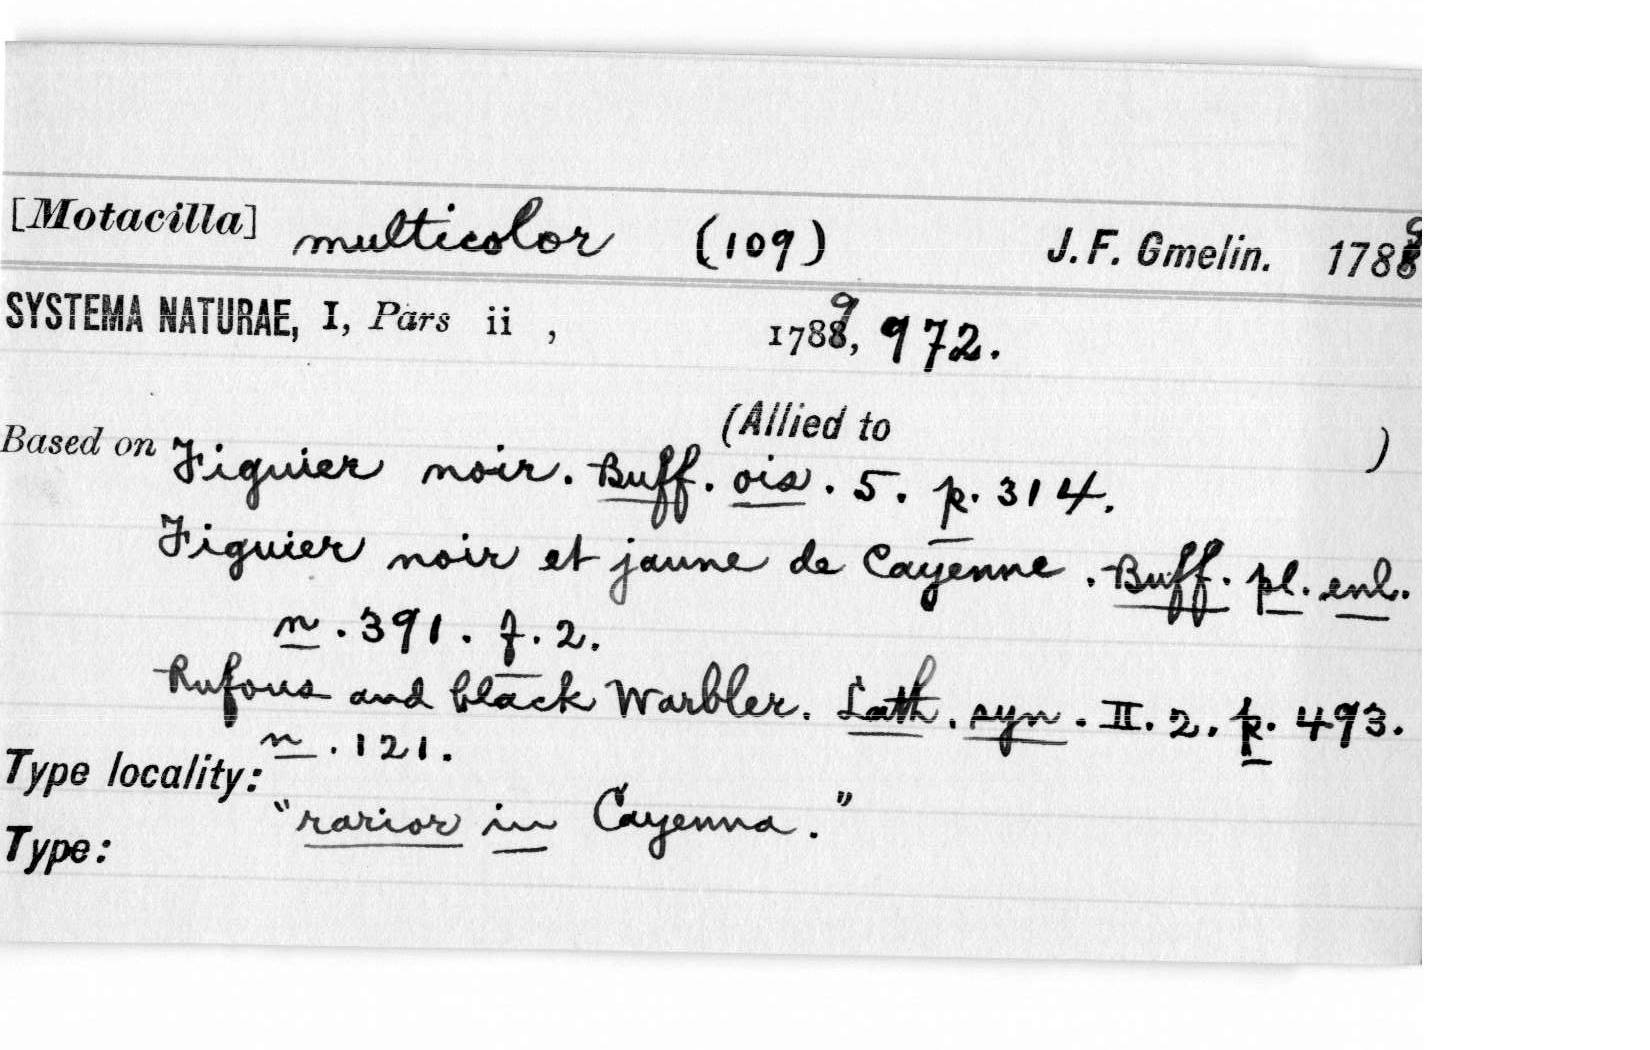 [Motacilla] multicolor (109) J. F. Gmelin. 1789
SYSTEMA NATURAE, I, Pars ii , 1789, 972.
(Allied to )
Based on Figuier noir. Buff. ois. 5. p. 314.
Figuier noir et jaune de Cayenne. Buff. pl. enl.
n. 391. f. 2.
Rufous and black Warbler. Lath. syn. II. 2. p. 493.
n. 121.
Type locality:
"rarior in Cayenna."
Type: